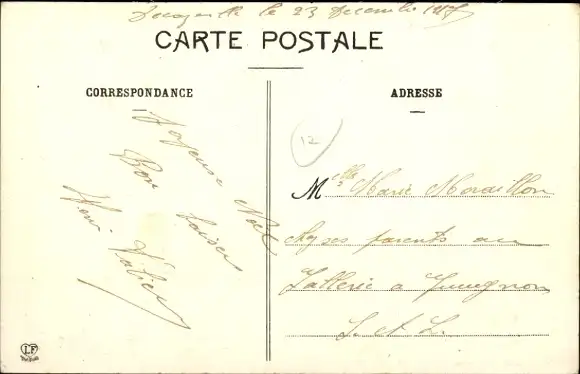 le 23 Décembre 1917
CARTE POSTALE
CORRESPONDANCE
Joyeuse Noël
Bon baiser
Henri
ADRESSE
12
Mlle Marie Moraillon
chez ses parents au
a Juvignon
L. et L.
LF